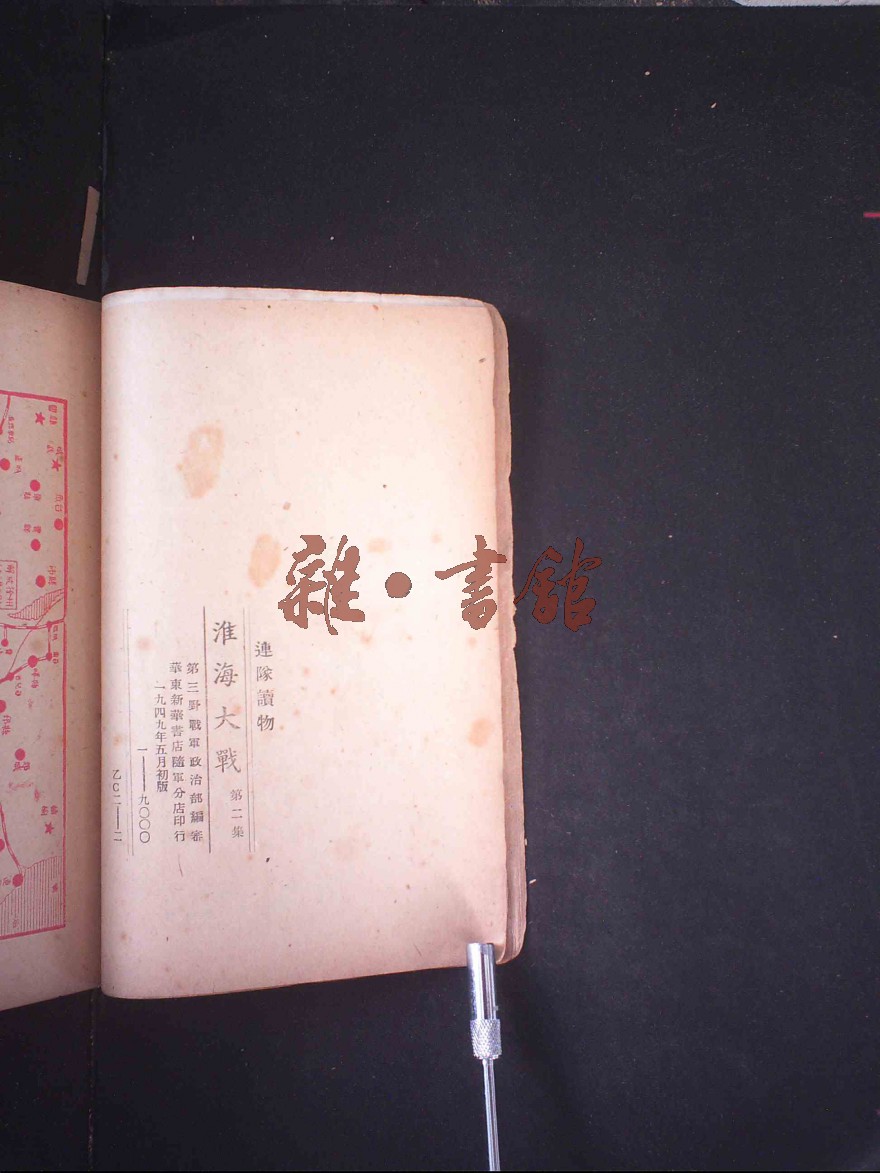 連隊讀物
淮海大戰 第二集
第三野戰軍政治部編審
華東新華書店隨軍分店印行
一九四九年五月初版
一——九〇〇〇
乙C二——二
雜·書館